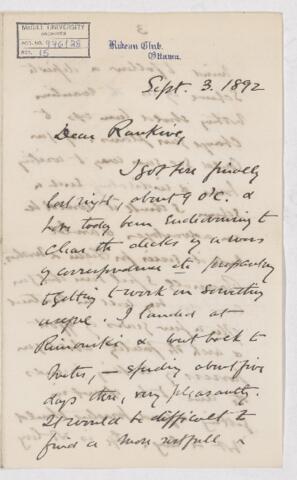 McGILL UNIVERSITY
ARCHIVES
ACC. NO. 976/38
REF. 15
Rideau Club,
Ottawa.
Sept. 3. 1892
Dear Rankine,
I got here finally
last night, about 9 o'c. &
have today been endeavouring to
clear the decks of a mass
of correspondence etc preparatory
to getting to work on something
. I landed at
Rimouski & went back to
Metis, — spending about five
days there, very pleasantly.
It would be difficult to
find a more restfull